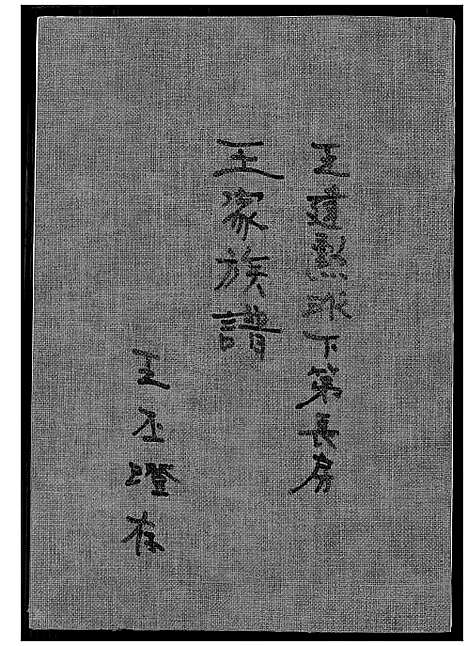 王建派下第長房
王家族譜
王丕澄存